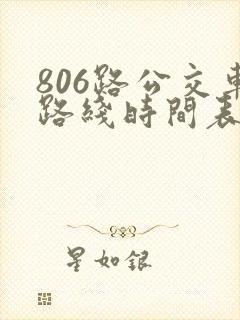 806路公交車
路綫時間表
星如銀